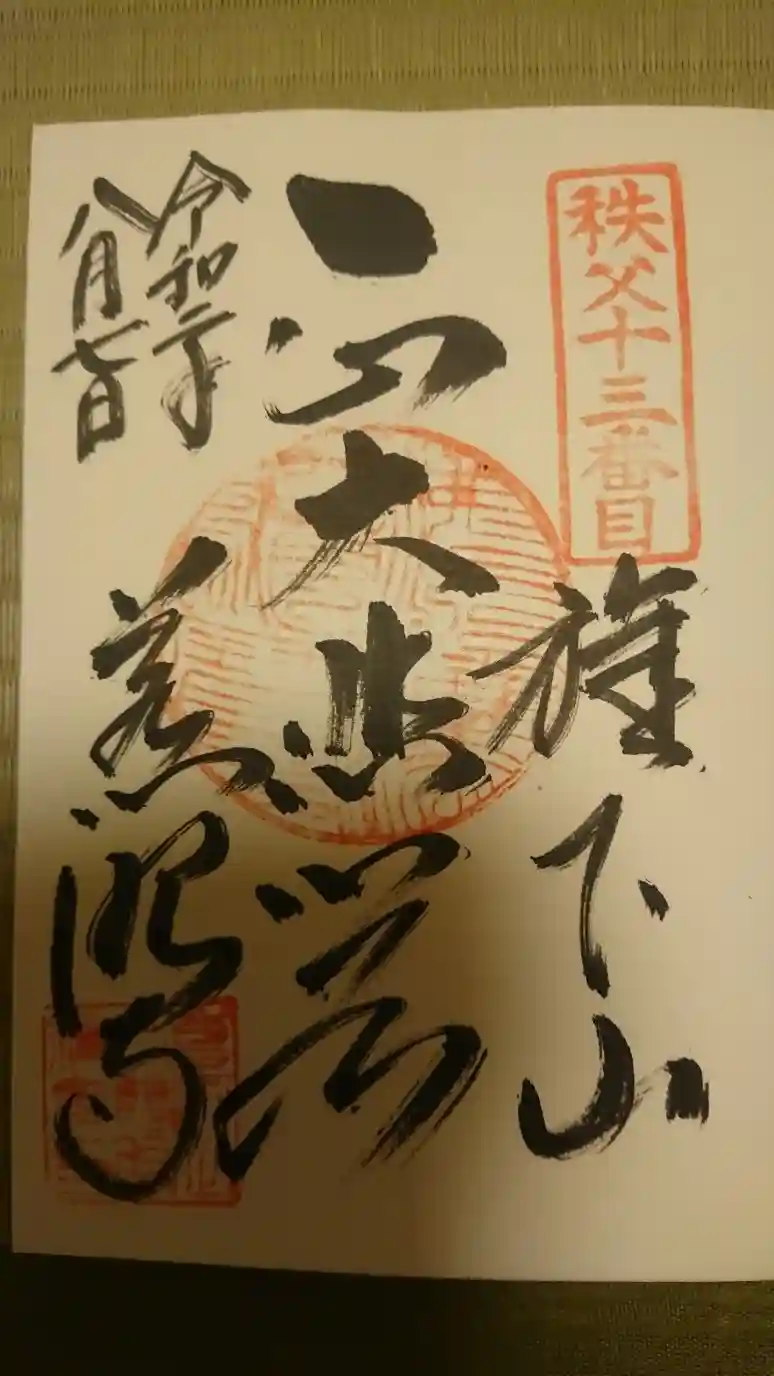 秩父十三番目
旗下山
一心大悲
令和二年
八月七日
慈眼寺